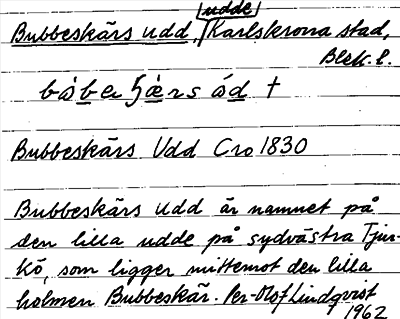 Bubbeskärs udd, udde, Karlskrona stad,
Blek. l.
Bubbeskärs Udd Cro 1830
Bubbeskärs udd är namnet på
den lilla udde på sydvästra Tjur-
kö, som ligger mittemot den lilla
holmen Bubbeskär. Per-Olof Lindqvist
1962